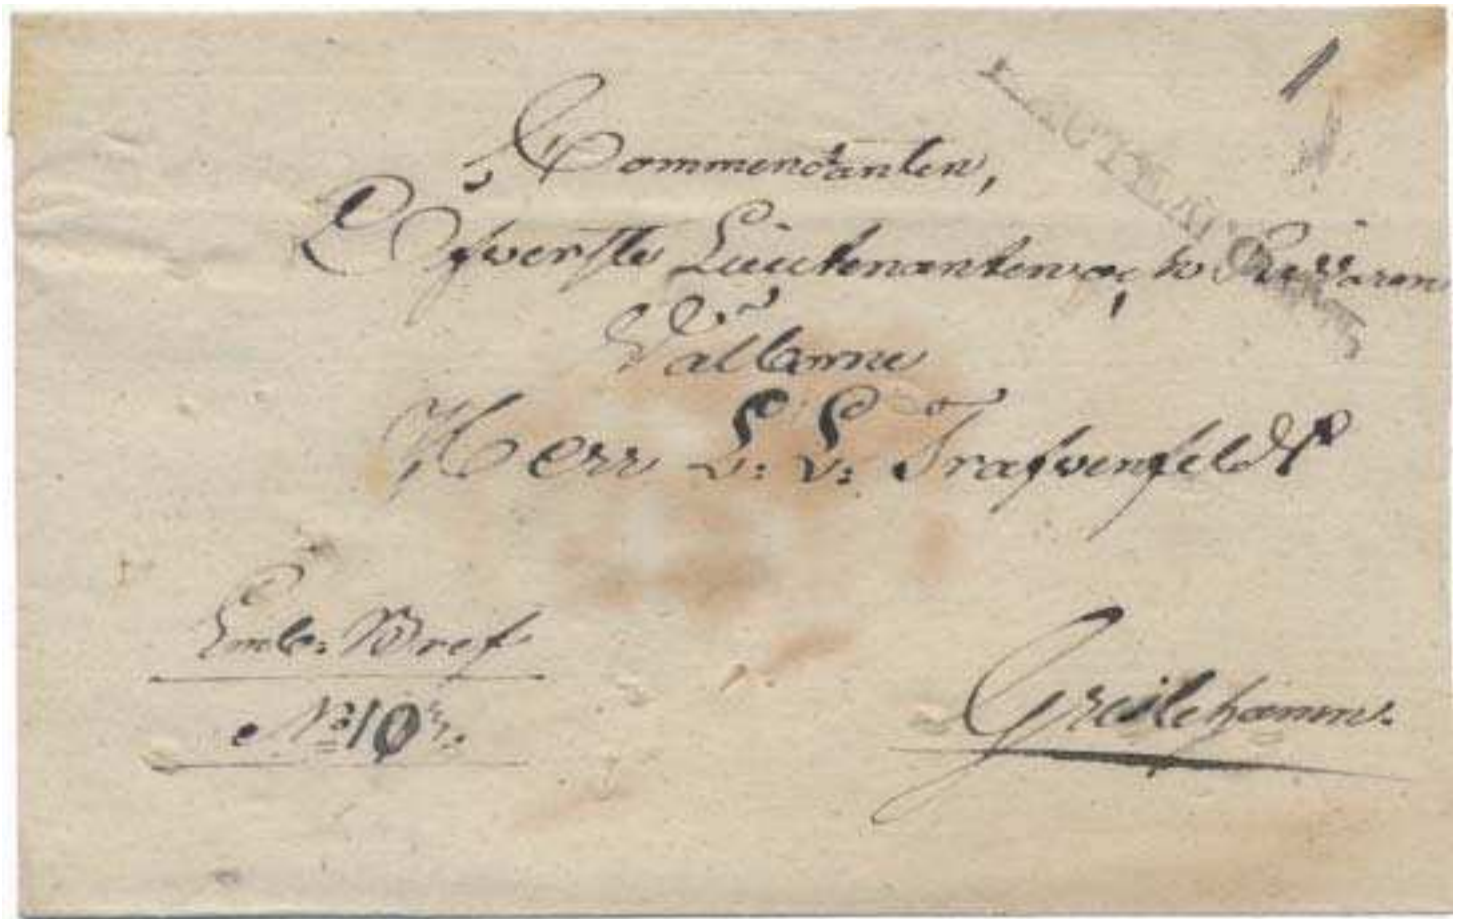 Commendanten,
Öfverste Lieutenanten och Riddaren
Välborne
Herr L: L: Trafvenfeldt
Embs. Bref
No 10
Greslehamn.